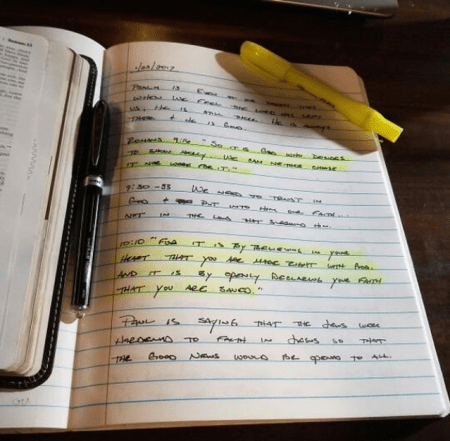 1/03/2017
Psalm 13 Even at our
when we feel the Lord has left
us, He is still there. He is always
there & He is good.
Romans 9:16 So it is God who decides
to show mercy. We can neither choose
it nor work for it."
9:30-33 We need to trust in
God & put into Him our faith...
not in the laws that surround Him.
10:10 "For it is by believing in your
heart that you are made right with God.
And it is by openly declaring your faith
that you are saved."
Paul is saying that the Jews were
hardened to faith in Jesus so that
the Good News would be opened to all.